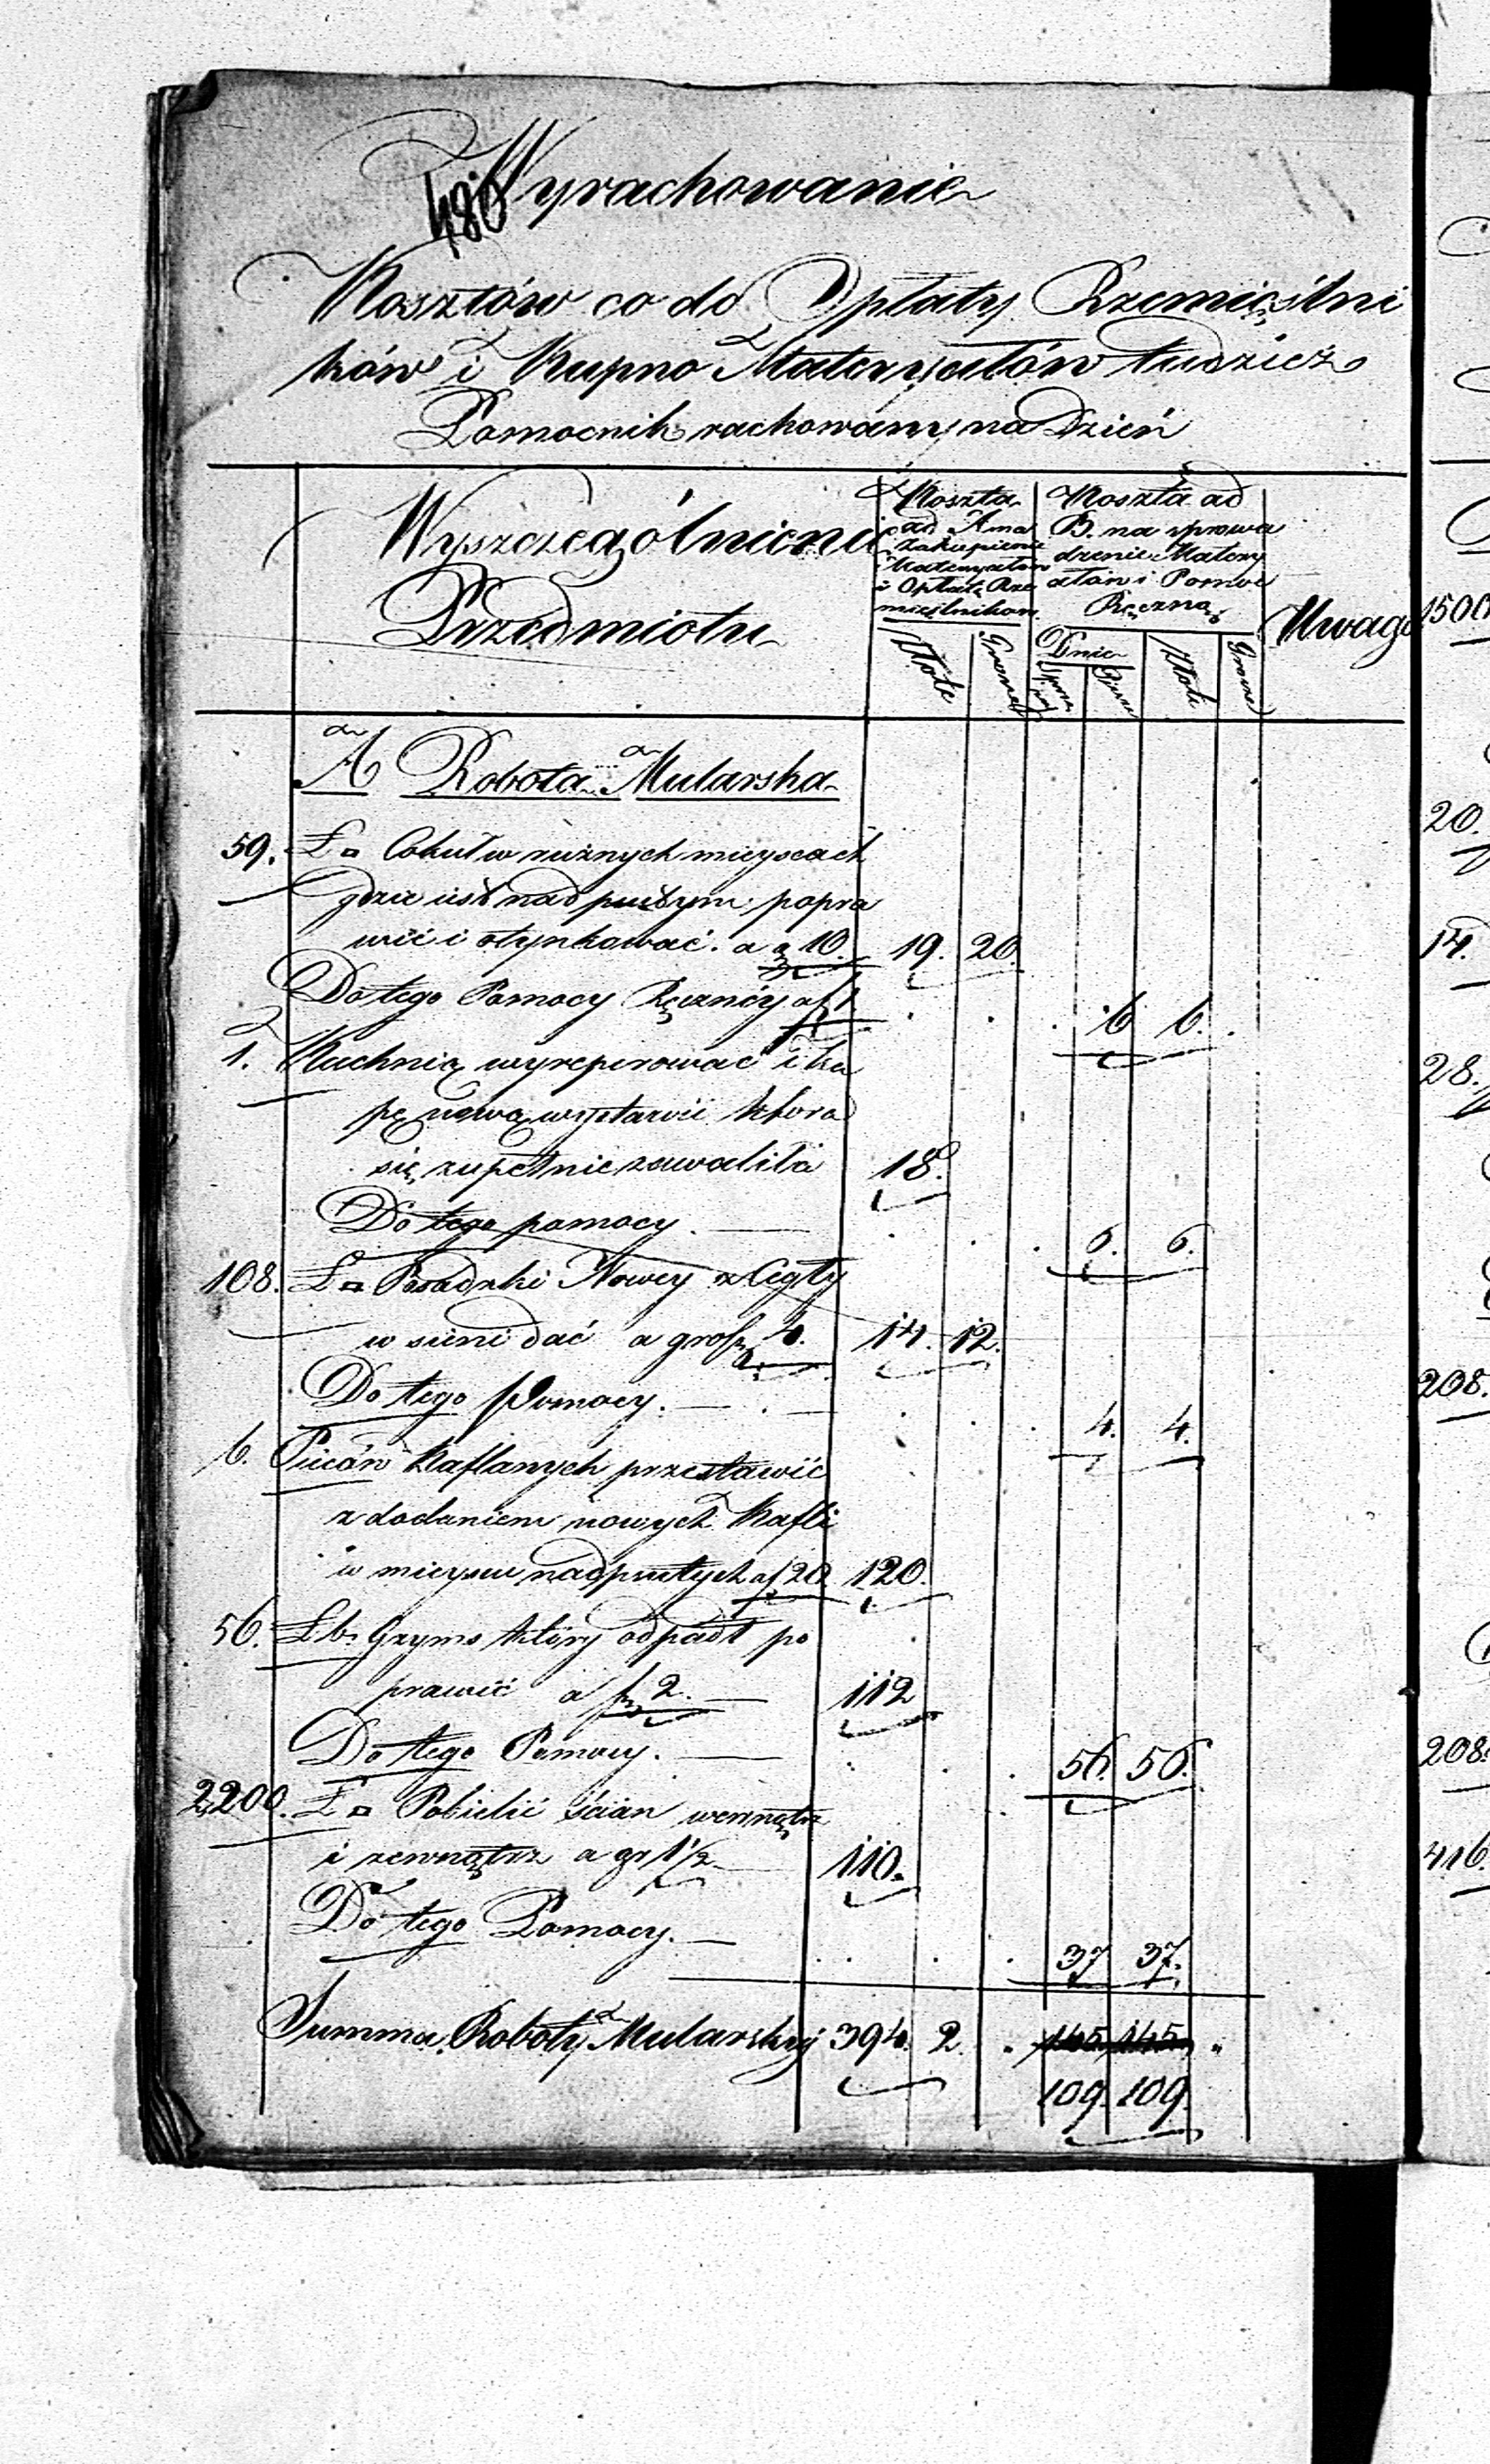 480
Wyrachowanie
Kosztów co do Opłaty Rzemieślni
ków i Kupno Materyałów tudzież
Pomocnik rachowany na Dzień
Wyszczególnienie
Przedmiotu
Koszta
ad A na
Zakupienie
Materyałów
i Opłatę Rze
mieślników
Złote
Grosze
Koszta ad
B. na sprowa
dzenie Matery
ałów i Pomoc
Ręczną
Dnie
Złote
Grosze
Uwaga
A Robota Mularska
59. Ł□ Cokuł w rużnych mieyscach
gdzie jest nadpsutym popra
wić i otynkować. a g 10. 19. 20.
Do tego Pomocy Ręczney a f 1 6 6.
1. Kuchnią wyreperować i ka
pę nową wystawić ktora
się zupełnie zawaliła 18.
Do tego pomocy. 6. 6.
108. Ł□ Posadzki Nowey z Cegły
w sieni dać a grosz 4. 14. 12.
Do tego Pomocy. 4. 4.
6. Piecón Kaflanych przestawić
z dodaniem nowych Kafli
w mieysce nadpsutych a f 20 120.
56. Ł b. Gzyms który odpadł po
prawić a f 2. 112
Do tego Pomocy. 56. 56.
2200. Ł□ Pobielić ścian wewnątrz
i zewnątrz a gr 1½ 110.
Do tego Pomocy. 37 37.
Summa Roboty Mularskiej 394. 2. 145. 145.
109. 109.
1500
20.
14.
28.
208.
208.
416.